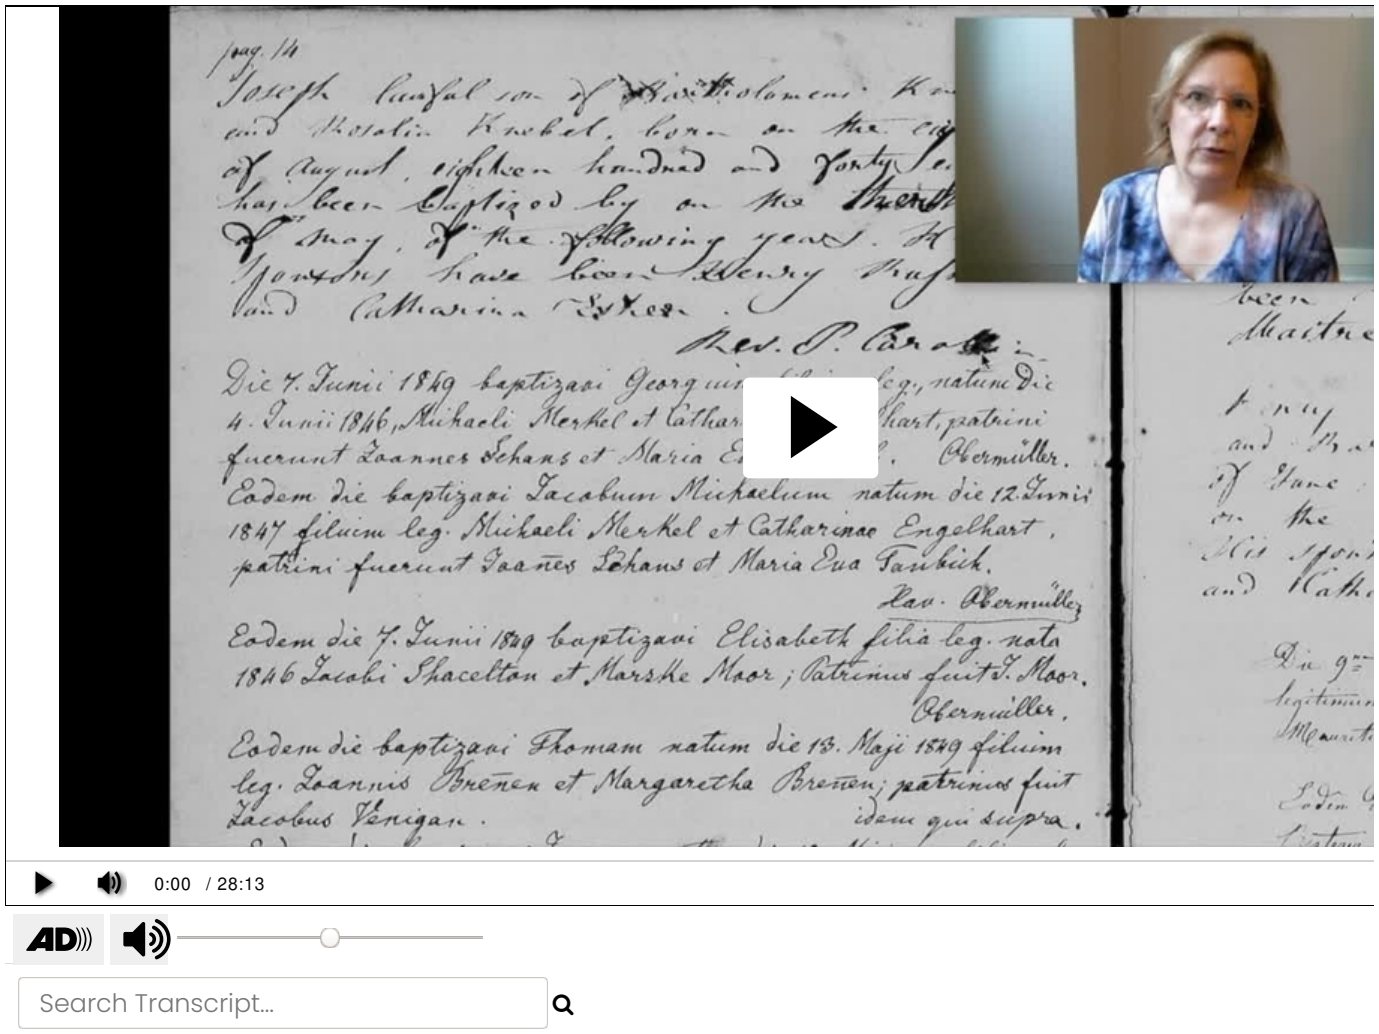 pag. 14
Joseph lawful son of Bartholomeus
and Rosalia Knebel, born on the
of August, eighteen hundred and forty
has been baptized by on the
of May, of the following years.
Sponsors have been Henry
and Catharina
Rev. P.
been
Maitre
Die 7. Junii 1849 baptizavi Georgium leg., natum Die
4. Junii 1846, Michaeli Merkel et Cathar hart, patrini
fuerunt Joannes Schans et Maria E Obermüller.
Eodem die baptizavi Jacobum Michaelum natum die 12. Junii
1847 filium leg. Michaeli Merkel et Catharinae Engelhart,
patrini fuerunt Joañes Schans et Maria Eva
Xav. Obermüller
Eodem die 7. Junii 1849 baptizavi Elisabeth filia leg. nata
1846 Jacobi Shacelton et Marske Moor; Patrinus fuit J. Moor.
Obermüller.
Eodem die baptizavi Thomam natum die 13. Maji 1849 filium
leg. Joannis Breñen et Margaretha Breñen; patrinus fuit
Jacobus Venigan. idem qui supra.
and
of June
on the
His
and Cath
Die 9
legitimum
Mauriti
Eodem
0:00 / 28:13
AD
Search Transcript...